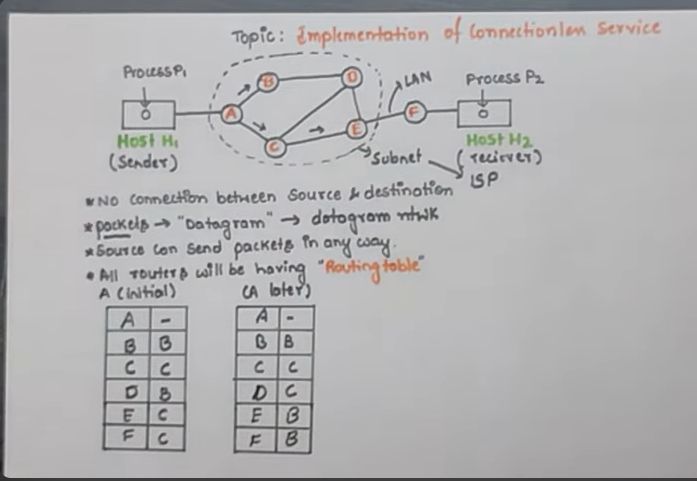 Topic: Implementation of Connectionless Service
Process P1
B
D
LAN
Process P2
O
A
F
O
Host H1
C
E
Host H2
(Sender)
Subnet
(reciever)
ISP
* No connection between source & destination
* packets → "Datagram" → datagram ntwk
* Source can send packets in any way.
* All routers will be having "Routing table"
A (initial) (A later)
A - A -
B B B B
C C C C
D B D C
E C E B
F C F B